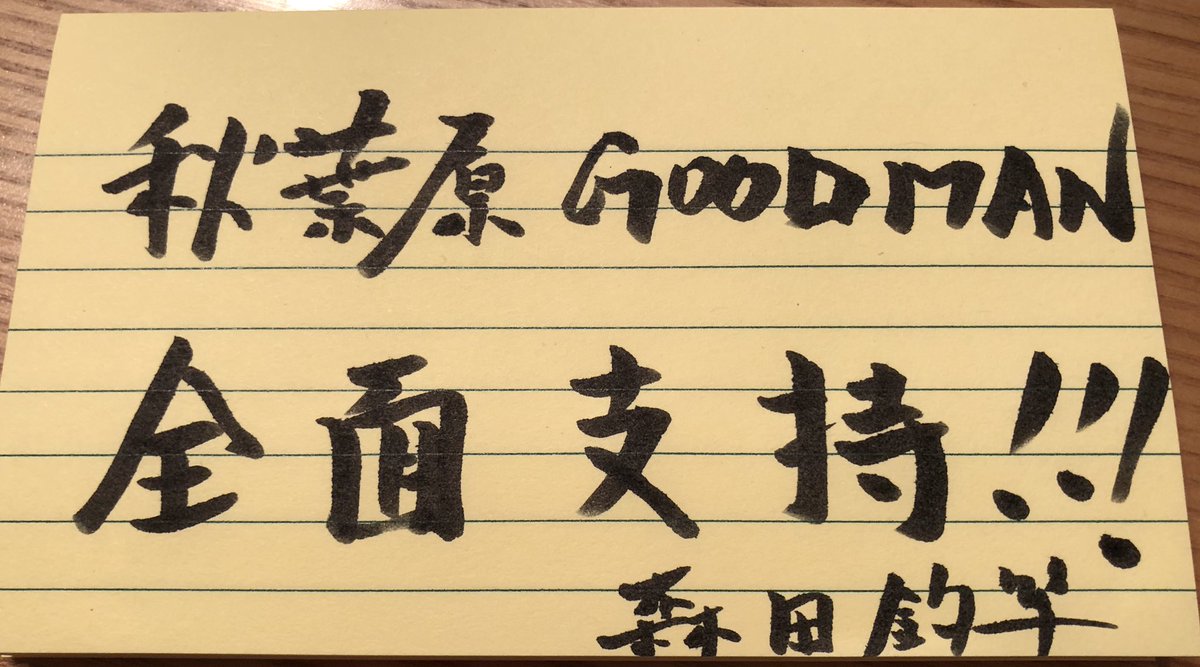 秋葉原 GOODMAN
全面支持!!!
森田釣竿